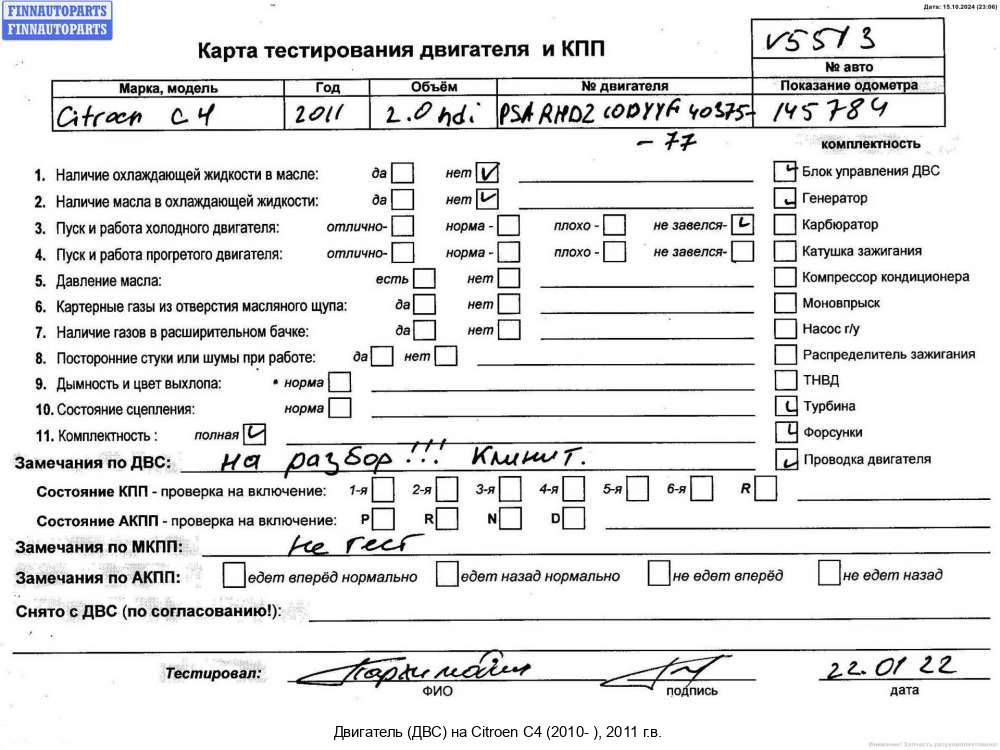 FINNAUTOPARTS
FINNAUTOPARTS
Дата: 15.10.2024 (23:06)
Карта тестирования двигателя и КПП
V5513
№ авто
Марка, модель Год Объём № двигателя Показание одометра
Citroen C4 2011 2.0 hdi PSA RHD2 10DYYF 40375- 145784
- 77
комплектность
1. Наличие охлаждающей жидкости в масле: да нет Блок управления ДВС
2. Наличие масла в охлаждающей жидкости: да нет Генератор
3. Пуск и работа холодного двигателя: отлично- норма - плохо - не завелся- Карбюратор
4. Пуск и работа прогретого двигателя: отлично- норма - плохо - не завелся- Катушка зажигания
5. Давление масла: есть нет Компрессор кондиционера
6. Картерные газы из отверстия масляного щупа: да нет Моновпрыск
7. Наличие газов в расширительном бачке: да нет Насос г/у
8. Посторонние стуки или шумы при работе: да нет Распределитель зажигания
9. Дымность и цвет выхлопа: норма ТНВД
10. Состояние сцепления: норма Турбина
11. Комплектность : полная Форсунки
Замечания по ДВС: на разбор!!! Клинит. Проводка двигателя
Состояние КПП - проверка на включение: 1-я 2-я 3-я 4-я 5-я 6-я R
Состояние АКПП - проверка на включение: P R N D
Замечания по МКПП: не тест
Замечания по АКПП: едет вперёд нормально едет назад нормально не едет вперёд не едет назад
Снято с ДВС (по согласованию!):
Тестировал: 22.01 22
ФИО подпись дата
Двигатель (ДВС) на Citroen C4 (2010- ), 2011 г.в.